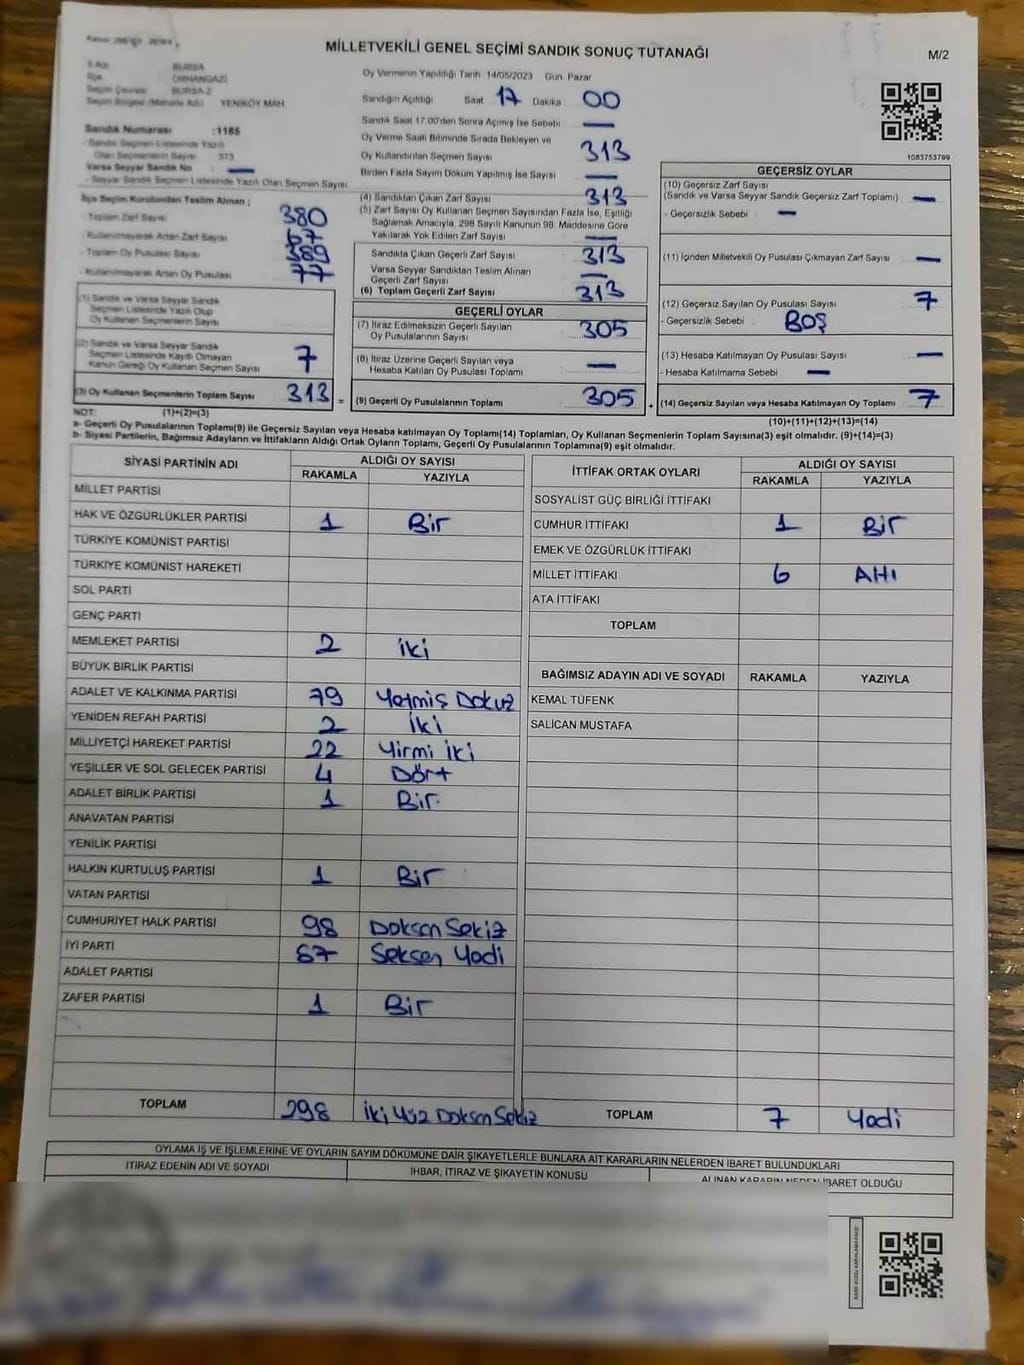 MİLLETVEKİLİ GENEL SEÇİMİ SANDIK SONUÇ TUTANAĞI
M/2
İl Adı BURSA
İlçe ORHANGAZİ
Seçim Çevresi BURSA-2
Seçim Bölgesi (Mahalle Adı) YENİKÖY MAH.
Sandık Numarası :1185
Sandık Seçmen Listesinde Yazılı
Olan Seçmenlerin Sayısı 373
Varsa Seyyar Sandık No —
- Seyyar Sandık Seçmen Listesinde Yazılı Olan Seçmen Sayısı
İlçe Seçim Kurulundan Teslim Alınan ;
- Toplam Zarf Sayısı 380
- Kullanılmayarak Artan Zarf Sayısı 67
- Toplam Oy Pusulası Sayısı 389
- Kullanılmayarak Artan Oy Pusulası 77
(1) Sandık ve Varsa Seyyar Sandık
Seçmen Listesinde Yazılı Olup
Oy Kullanan Seçmenlerin Sayısı
(2) Sandık ve Varsa Seyyar Sandık
Seçmen Listesinde Kayıtlı Olmayan
Kanun Gereği Oy Kullanan Seçmen Sayısı 7
(3) Oy Kullanan Seçmenlerin Toplam Sayısı 313 =
Oy Vermenin Yapıldığı Tarih 14/05/2023 Gün Pazar
Sandığın Açıldığı Saat 17 Dakika 00
Sandık Saat 17.00'den Sonra Açılmış İse Sebebi —
Oy Verme Saati Bitiminde Sırada Bekleyen ve
Oy Kullandırılan Seçmen Sayısı 313
Birden Fazla Sayım Döküm Yapılmış İse Sayısı —
(4) Sandıktan Çıkan Zarf Sayısı 313
(5) Zarf Sayısı Oy Kullanan Seçmen Sayısından Fazla İse, Eşitliği
Sağlamak Amacıyla, 298 Sayılı Kanunun 98. Maddesine Göre
Yakılarak Yok Edilen Zarf Sayısı —
Sandıkta Çıkan Geçerli Zarf Sayısı 313
Varsa Seyyar Sandıktan Teslim Alınan
Geçerli Zarf Sayısı —
(6) Toplam Geçerli Zarf Sayısı 313
GEÇERLİ OYLAR
(7) İtiraz Edilmeksizin Geçerli Sayılan
Oy Pusulalarının Sayısı 305
(8) İtiraz Üzerine Geçerli Sayılan veya
Hesaba Katılan Oy Pusulası Toplamı —
(9) Geçerli Oy Pusulalarının Toplamı 305 +
1083753799
GEÇERSİZ OYLAR
(10) Geçersiz Zarf Sayısı
(Sandık ve Varsa Seyyar Sandık Geçersiz Zarf Toplamı) —
- Geçersizlik Sebebi : —
(11) İçinden Milletvekili Oy Pusulası Çıkmayan Zarf Sayısı —
(12) Geçersiz Sayılan Oy Pusulası Sayısı 7
- Geçersizlik Sebebi : BOŞ
(13) Hesaba Katılmayan Oy Pusulası Sayısı —
- Hesaba Katılmama Sebebi : —
(14) Geçersiz Sayılan veya Hesaba Katılmayan Oy Toplamı 7
(10)+(11)+(12)+(13)=(14)
NOT: (1)+(2)=(3)
a- Geçerli Oy Pusulalarının Toplamı(9) ile Geçersiz Sayılan veya Hesaba katılmayan Oy Toplamı(14) Toplamları, Oy Kullanan Seçmenlerin Toplam Sayısına(3) eşit olmalıdır. (9)+(14)=(3)
b- Siyasi Partilerin, Bağımsız Adayların ve İttifakların Aldığı Ortak Oyların Toplamı, Geçerli Oy Pusulalarının Toplamına(9) eşit olmalıdır.
SİYASİ PARTİNİN ADI ALDIĞI OY SAYISI
RAKAMLA YAZIYLA
MİLLET PARTİSİ
HAK VE ÖZGÜRLÜKLER PARTİSİ 1 Bir
TÜRKİYE KOMÜNİST PARTİSİ
TÜRKİYE KOMÜNİST HAREKETİ
SOL PARTİ
GENÇ PARTİ
MEMLEKET PARTİSİ 2 iki
BÜYÜK BİRLİK PARTİSİ
ADALET VE KALKINMA PARTİSİ 79 Yetmiş Dokuz
YENİDEN REFAH PARTİSİ 2 İki
MİLLİYETÇİ HAREKET PARTİSİ 22 Yirmi iki
YEŞİLLER VE SOL GELECEK PARTİSİ 4 Dört
ADALET BİRLİK PARTİSİ 1 Bir
ANAVATAN PARTİSİ
YENİLİK PARTİSİ
HALKIN KURTULUŞ PARTİSİ 1 Bir
VATAN PARTİSİ
CUMHURİYET HALK PARTİSİ 98 Doksan Sekiz
İYİ PARTİ 87 Seksen Yedi
ADALET PARTİSİ
ZAFER PARTİSİ 1 Bir
TOPLAM 298 iki Yüz Doksan Sekiz
İTTİFAK ORTAK OYLARI ALDIĞI OY SAYISI
RAKAMLA YAZIYLA
SOSYALİST GÜÇ BİRLİĞİ İTTİFAKI
CUMHUR İTTİFAKI 1 Bir
EMEK VE ÖZGÜRLÜK İTTİFAKI
MİLLET İTTİFAKI 6 Altı
ATA İTTİFAKI
TOPLAM
BAĞIMSIZ ADAYIN ADI VE SOYADI RAKAMLA YAZIYLA
KEMAL TÜFENK
SALİCAN MUSTAFA
TOPLAM 7 Yedi
OYLAMA İŞ VE İŞLEMLERİNE VE OYLARIN SAYIM DÖKÜMÜNE DAİR ŞİKAYETLERLE BUNLARA AİT KARARLARIN NELERDEN İBARET BULUNDUKLARI
İTİRAZ EDENİN ADI VE SOYADI
İHBAR, İTİRAZ VE ŞİKAYETİN KONUSU
ALINAN KARARIN NEDEN İBARET OLDUĞU